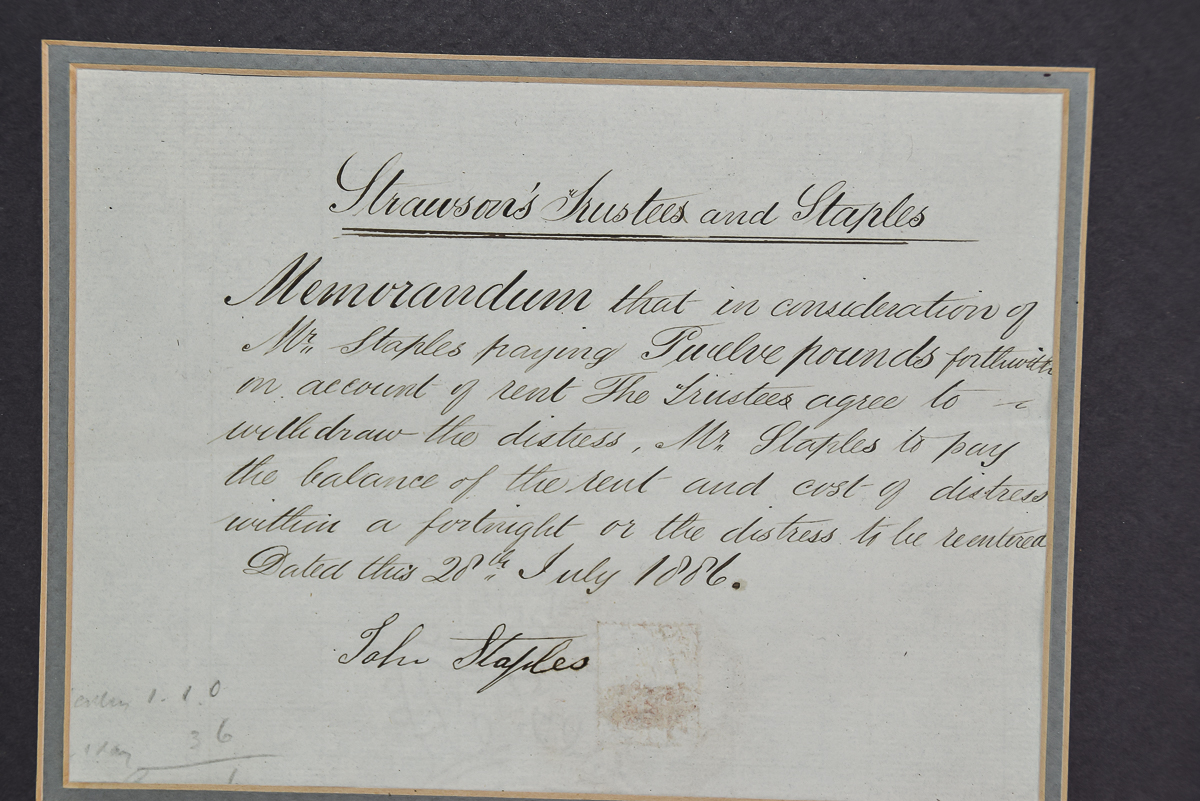 Strawson's Trustees and Staples
Memorandum that in consideration of
Mr. Staples paying Twelve pounds forthwith
on account of rent The Trustees agree to
withdraw the distress, Mr. Staples to pay
the balance of the rent and cost of distress
within a fortnight or the distress to be reentered
Dated this 28th July 1886.
John Staples
1.1.0
3 6